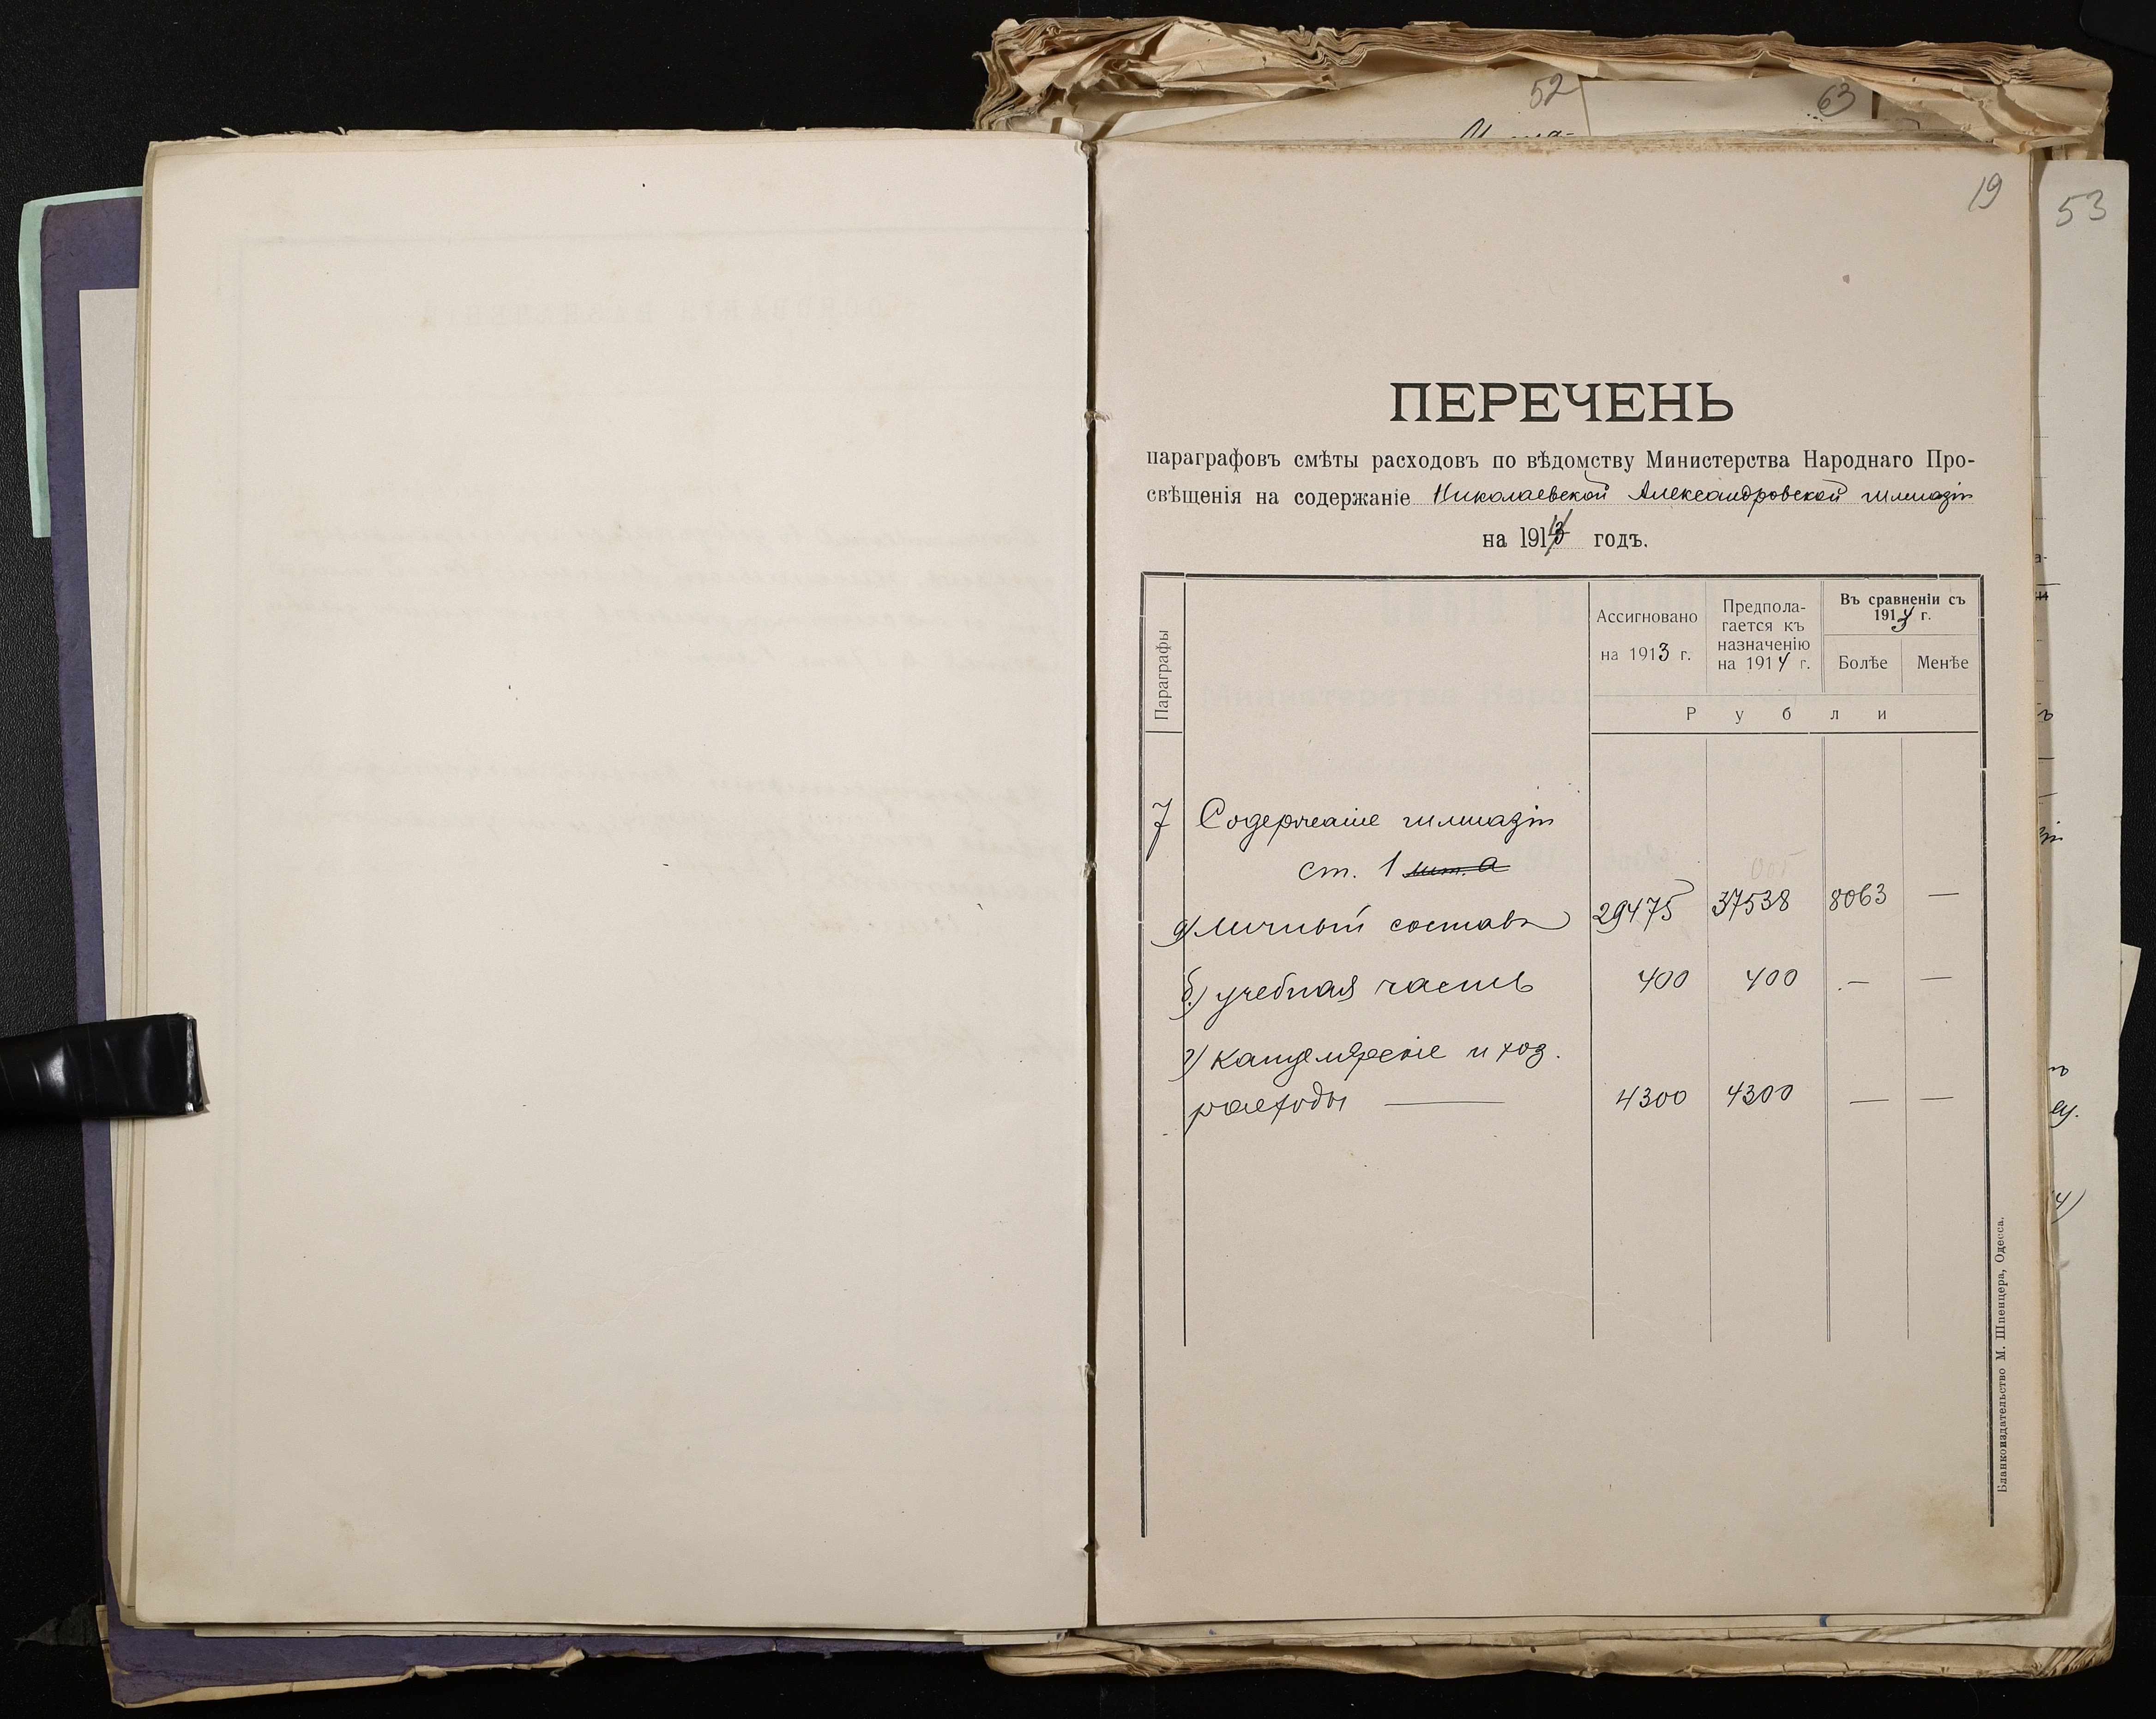 52
63
19
53
ПЕРЕЧЕНЬ
параграфовъ смѣты расходовъ по вѣдомству Министерства Народнаго Про-
свѣщенія на содержаніе Николаевской Александровской гимназіи
на 1914 годъ.
Параграфы
Ассигновано
на 1913 г.
Предпола-
гается къ
назначенію
на 1914 г.
Въ сравненіи съ
1913 г.
Болѣе Менѣе
Рубли
7 Содержаніе гимназіи
ст. 1 лит. а
а) личный составъ 29475 37538 8063 —
б) учебная часть 400 400 — —
г) канцелярскіе и хоз.
расходы — 4300 4300 — —
Бланкоиздательство М. Шпенцера, Одесса.